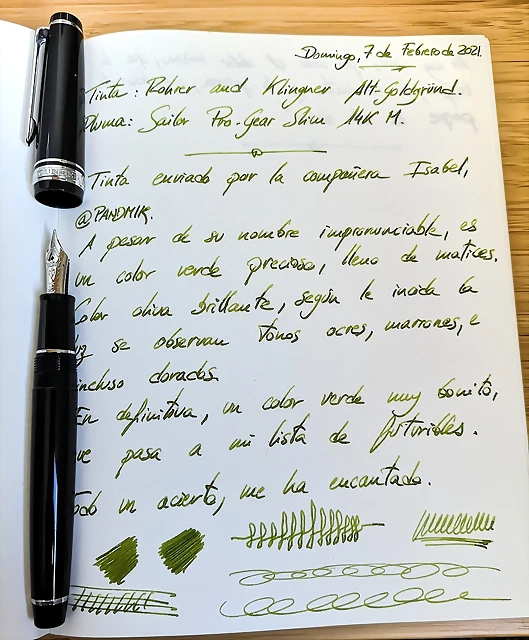 Domingo, 7 de Febrero de 2021.
Tinta: Rohrer and Klingner Alt-Goldgründ.
Pluma: Sailor Pro-Gear Slim 14K M.
Tinta enviada por la compañera Isabel,
@PANDMIR.
A pesar de su nombre impronunciable, es
un color verde precioso, lleno de matices.
Color oliva brillante, según le incida la
luz se observan tonos ocres, marrones, e
incluso dorados.
En definitiva, un color verde muy bonito,
que pasa a mi lista de futuribles.
Todo un acierto, me ha encantado.